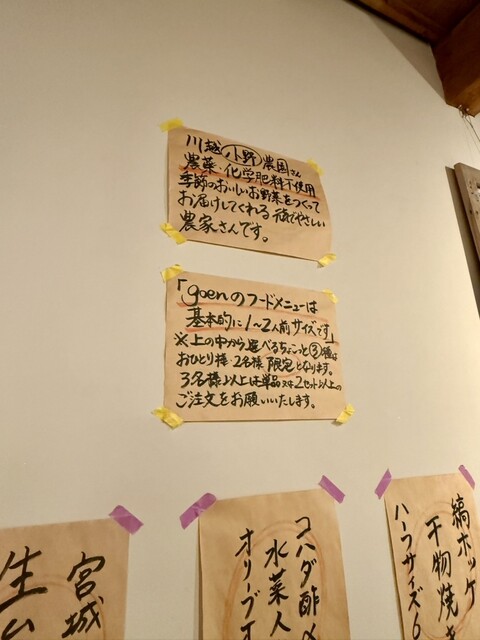 川越 小野 農園さん
農薬・化学肥料不使用
季節のおいしいお野菜をつくって
お届けしてくれる 元気でやさしい
農家さんです。
「goenのフードメニューは
基本的に1〜2人前サイズです」
※上の中から選べるちょこっと③種は
おひとり様・2名様 限定となります。
3名様以上は単品又は2セット以上の
ご注文をお願いいたします。
宮城
生
コハダ酢〆
水菜
オリーブオ
縞ホッケ
干物焼き
ハーフサイズ6